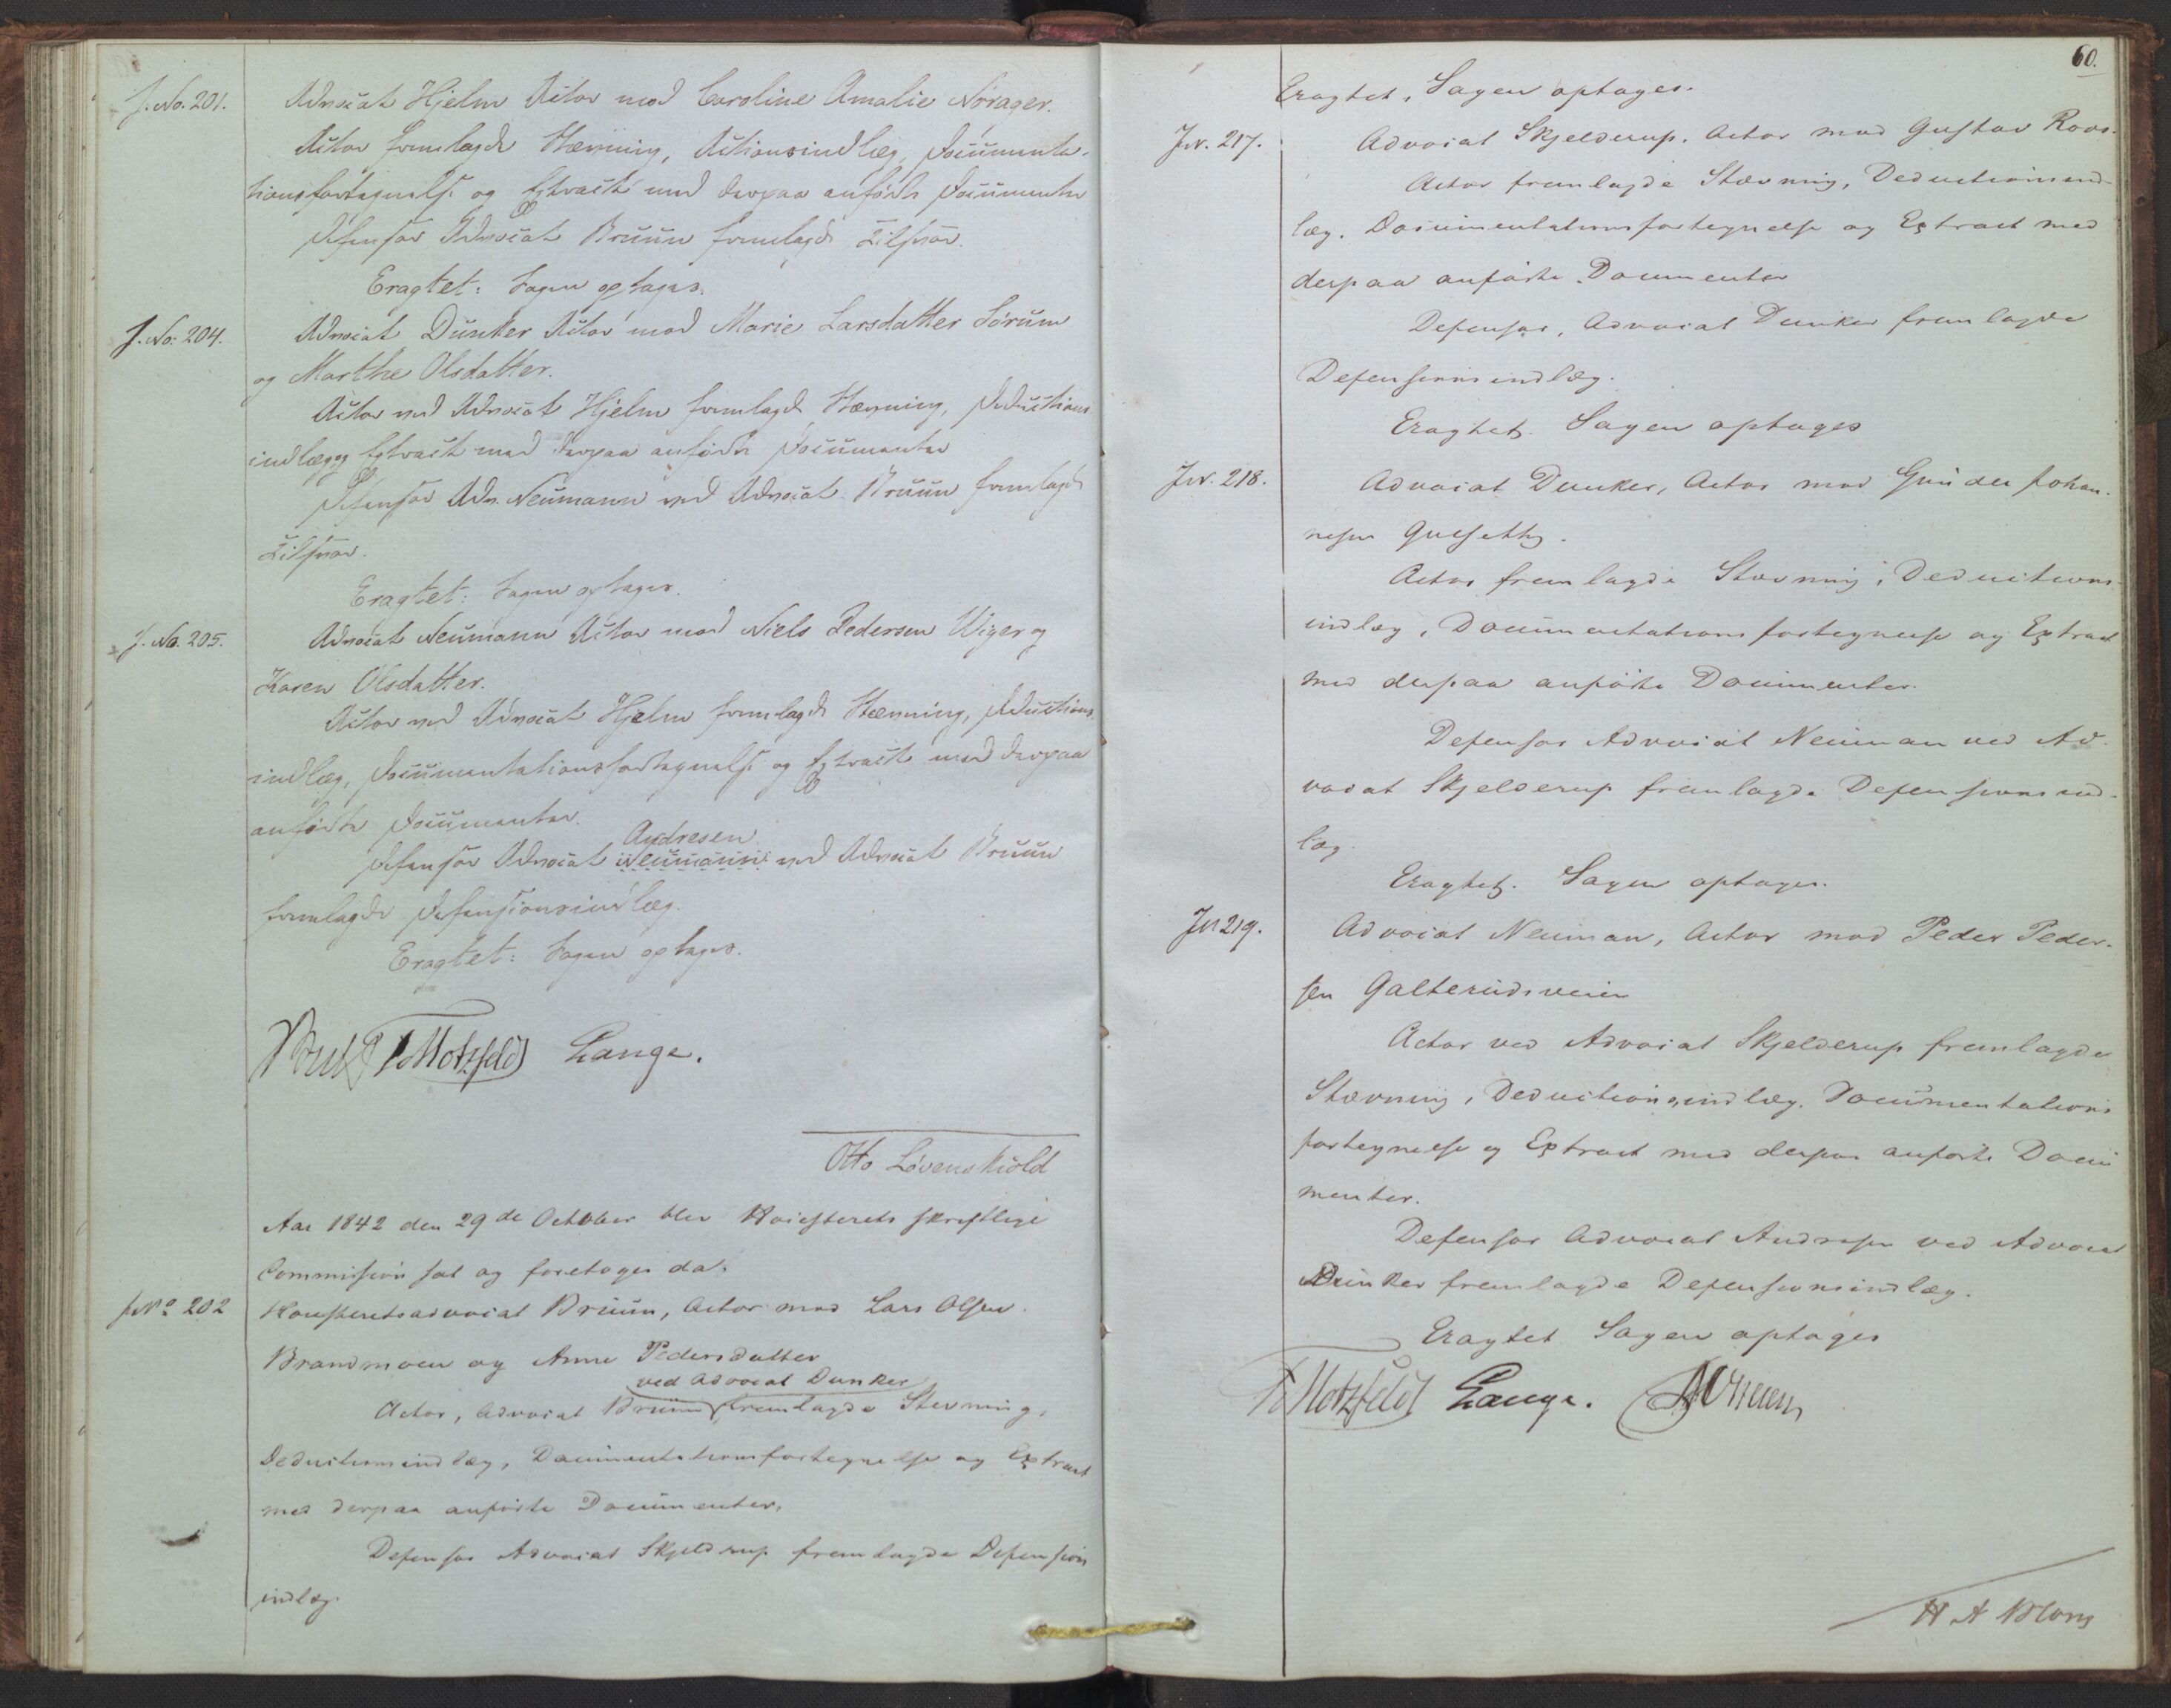 J. No. 201.
Advocat Hjelm Actor mod Caroline Amalie Nörager.
Actor fremlagde Stævning, Actionsindlæg, Documenta-
tionsfortegnelse og Extract med derpaa anførte Documenter
Defensor Advocat Bruun fremlagde Tilsvar.
Eragtet: Sagen optages.
J. No. 204.
Advocat Dunker Actor mod Marie Larsdatter Sörum
og Marthe Olsdatter.
Actor ved Advocat Hjelm fremlagde Stævning, Deductions
indlæg og Extract med derpaa anførte Documenter
Defensor Adv. Neumann ved Advocat Bruun fremlagde
Tilsvar.
Eragtet: Sagen optages.
J. No. 205.
Advocat Neumann Actor mod Niels Pedersen Wiger og
Karen Olsdatter.
Actor ved Advocat Hjelm fremlagde Stævning, Deductions
indlæg, Documentationsfortegnelse og Extract med derpaa
anførte Documenter.
Andresen
Defensor Advocat Neumann ved Advocat Bruun
fremlagde Defensionsindlæg.
Eragtet: Sagen optages.
Motzfeldt Lange.
Otto Lövenskiold
Aar 1842 den 29de October blev Høiesterets skriftlige
Commission sat og foretoges da:
JNo 202
Høiesteretsadvocat Bruun, Actor mod Lars Olsen
Brandmoen og Anne Pedersdatter
ved Advocat Dunker
Actor, Advocat Bruun fremlagde Stevning,
Deductionsindlæg, Documentationsfortegnelse og Extract
med derpaa anførte Documenter,
Defensor Advocat Skjelderup fremlagde Defension
indlæg.
60.
Eragtet, Sagen optages.
JN. 217.
Advocat Skjelderup, Actor mod Gustav Roos.
Actor fremlagde Stævning, Deductionsind-
læg, Documentationsfortegnelse og Extract med
derpaa anførte Documenter
Defensor, Advocat Dunker fremlagde
Defensionsindlæg.
Eragtet. Sagen optages
JN. 218.
Advocat Dunker, Actor mod Gunder Johan-
nesen
Actor fremlagde Stævning, Deductions-
indlæg, Documentationsfortegnelse og Extract
med derpaa anførte Documenter.
Defensor Advocat Neuman ved Ad-
vocat Skjelderup fremlagde Defensionsind-
læg.
Eragtet. Sagen optages.
JN 219.
Advocat Neuman, Actor mod Peder Peder-
sen Galterudsveien
Actor ved Advocat Skjelderup fremlagde
Stævning, Deductionsindlæg, Documentations
fortegnelse og Extract med derpaa anførte Docu
menter.
Defensor Advocat Andresen ved Advocat
Dunker fremlagde Defensionsindlæg.
Eragtet Sagen optages
Motzfeldt Lange.
H A